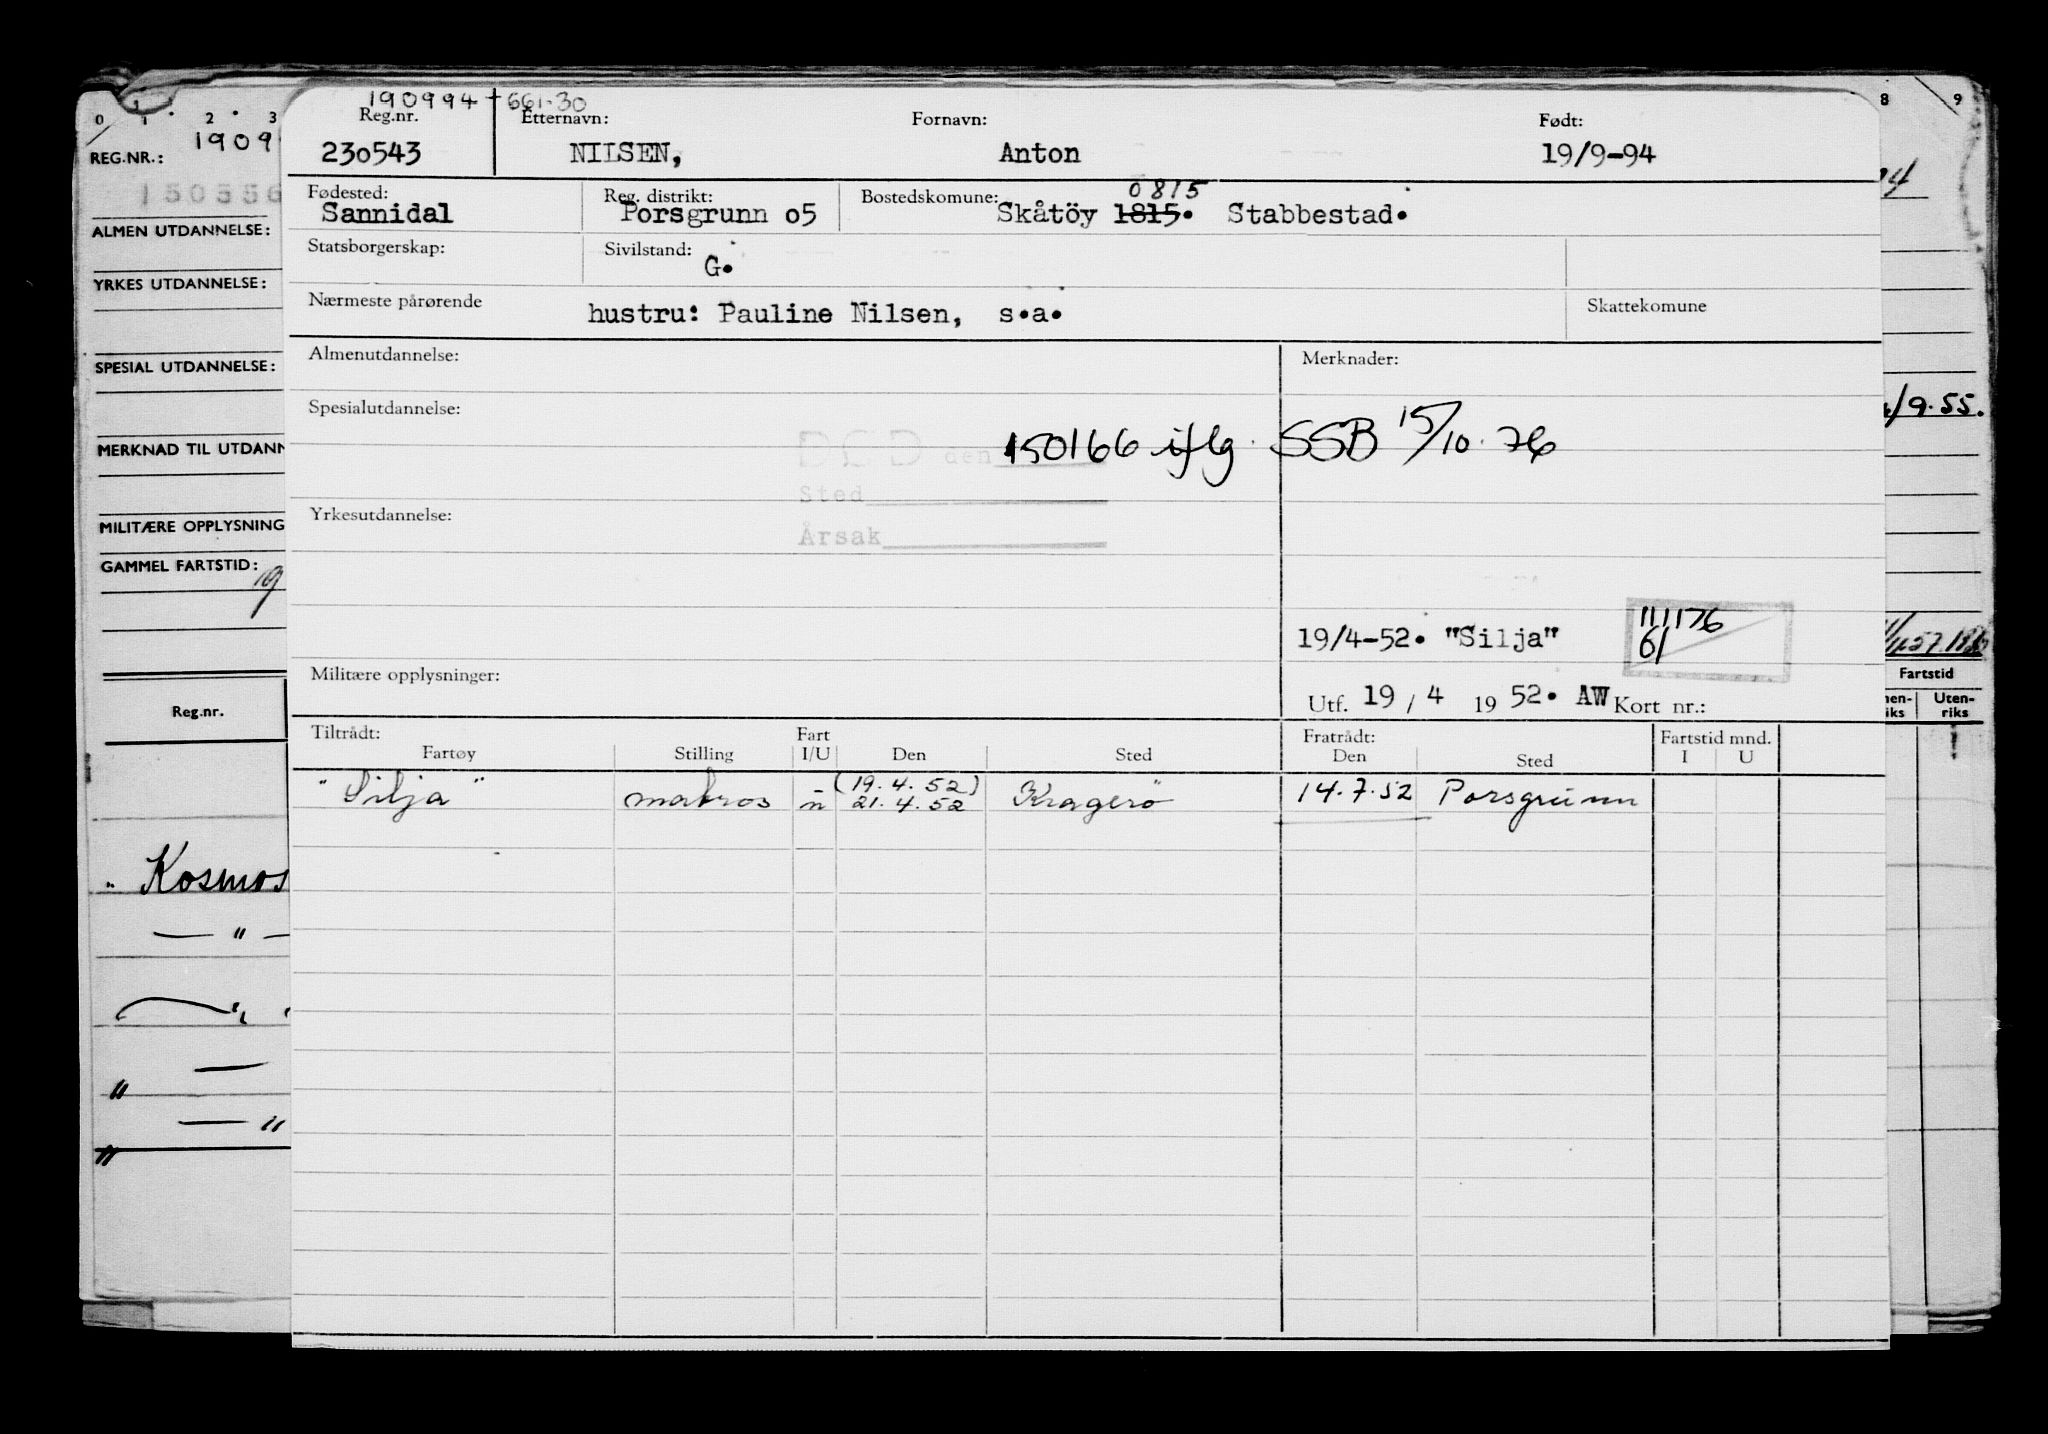 0 1 2 3
8 9
REG.NR.: 1909
ALMEN UTDANNELSE:
YRKES UTDANNELSE:
SPESIAL UTDANNELSE:
MERKNAD TIL UTDANN
MILITÆRE OPPLYSNING
GAMMEL FARTSTID: 19
Reg.nr.
" Kosmos
— " —
— "
9.55.
Fartstid
Uten-
riks
190994 + 661.30
Reg.nr. Etternavn: Fornavn: Født:
230543 NILSEN, Anton 19/9-94
Fødested: Reg. distrikt: Bostedskomune: 0815
Sannidal Porsgrunn o5 Skåtöy 1815. Stabbestad.
Statsborgerskap: Sivilstand: G.
Nærmeste pårørende hustru: Pauline Nilsen, s.a. Skattekomune
Almenutdannelse: Merknader:
Spesialutdannelse:
DØD den 150166 iflg. SSB 15/10.76
Sted
Yrkesutdannelse:
Årsak
19/4-52. "Silja" 111176
61
Militære opplysninger:
Utf. 19 / 4 19 52. AW Kort nr.:
Tiltrådt: Fart Fratrådt: Fartstid mnd.
Fartøy Stilling I/U Den Sted Den Sted I U
"Silja" matros n (19.4.52) 21.4.52 Kragerö 14.7.52 Porsgrunn